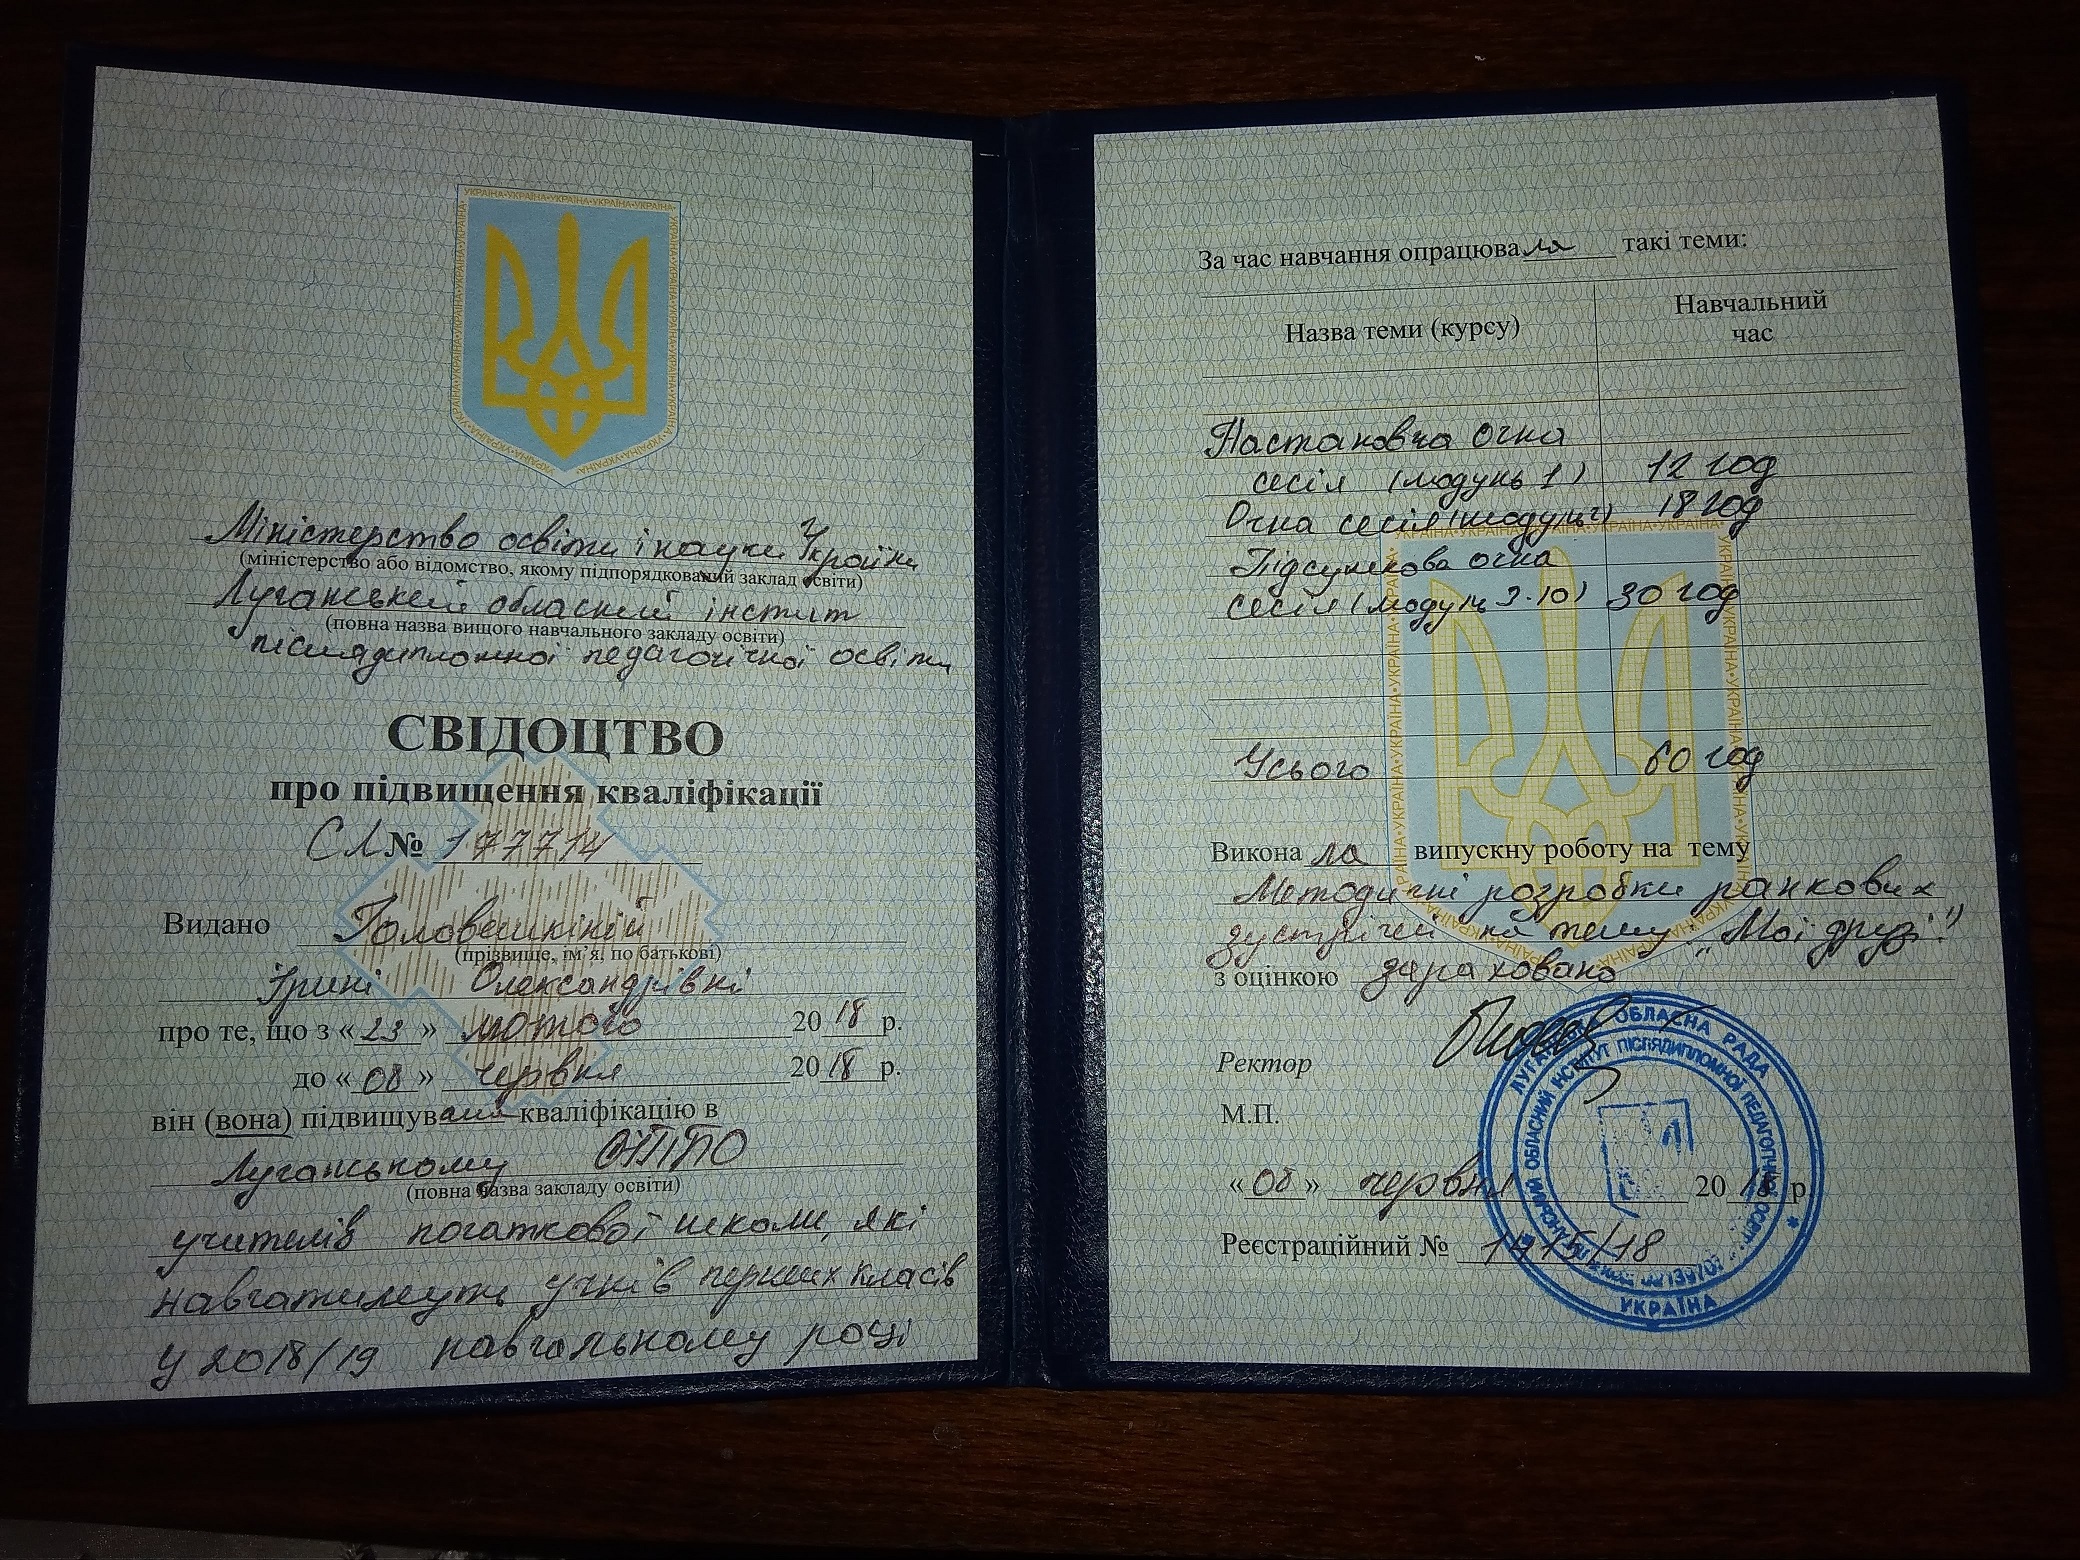 УКРАЇНА•УКРАЇНА•УКРАЇНА•УКРАЇНА•УКРАЇНА
Міністерство освіти і науки України
(міністерство або відомство, якому підпорядкований заклад освіти)
Луганський обласний інстит
(повна назва вищого навчального закладу освіти)
післядипломної педагогічної освіти
СВІДОЦТВО
про підвищення кваліфікації
СЛ № 177714
Видано Головешкіній
(прізвище, ім’я, по батькові)
Ірині Олександрівні
про те, що з «23» лютого 2018 р.
до «08» червня 2018 р.
він (вона) підвищувала кваліфікацію в
Луганському ОІППО
(повна назва закладу освіти)
учителів початкової школи, які
навчатимуть учнів перших класів
у 2018/19 навчальному році
За час навчання опрацювала такі теми:
Назва теми (курсу)
Навчальний
час
Настановча очна
сесія (модуль 1) 12 год
Очна сесія (модуль 2) 18 год
Підсумкова очна
сесія (модуль 3-10) 30 год
Усього 60 год
Виконала випускну роботу на тему
Методичні розробки ранкових
зустрічей на тему: "Мої друзі!"
з оцінкою зараховано
Ректор
М.П.
«08» червня 2018 р.
Реєстраційний № 1475/18
ОБЛАСНА РАДА
ОБЛАСНИЙ ІНСТИТУТ ПІСЛЯДИПЛОМНОЇ ПЕДАГОГІЧНОЇ ОСВІТИ
УКРАЇНА